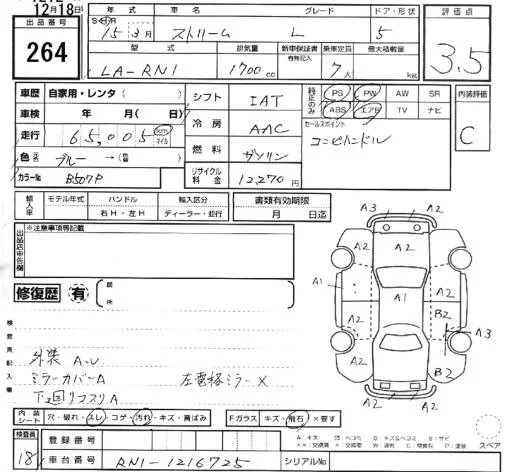 12月18日
出品番号 264
年式 車名 グレード ドア・形状
S H R 15年3月 ストリーム L 5
型式 排気量 新車保証書 有無記入 乗車定員 最大積載量
LA-RN1 1700cc 7人 kg
評価点 3.5
車歴 自家用・レンタ( )
車検 年 月( 日)
走行 65,005 km マイル
色 ブルー → ( )
カラーNo B507P
シフト IAT
冷房 AAC
燃料 ガソリン
リサイクル料金 12,270円
純正のみ PS PW AW SR
ABS エアB TV ナビ
セールスポイント
コンビハンドル
内装評価 C
輸入車 モデル年式 ハンドル 右H・左H 輸入区分 ディーラー・並行
書類有効期限 月 日迄
出品店申告欄 ※注意事項等記載
修復歴 有 前 後
検査員記入欄
外装 A.U
ミラーカバーA 左電格ミラーX
下回リコスリA
A3 A2
A2 A2 A2
A1 A1 A2
A2 B2 A3
A2 A2 B2
A2 A2
内装シート 穴・破れ・スレ・コゲ・汚れ・キズ・黄ばみ Fガラス キズ・飛石・×要す
A:キズ 凹:ヘコミ B:キズ&ヘコミ S:サビ
××:交換済 ×:要交換 W:波有 C:腐食 P:塗装
スペア
検査員 18
登録番号
車台番号 RN1-1216725 シリアルNo.